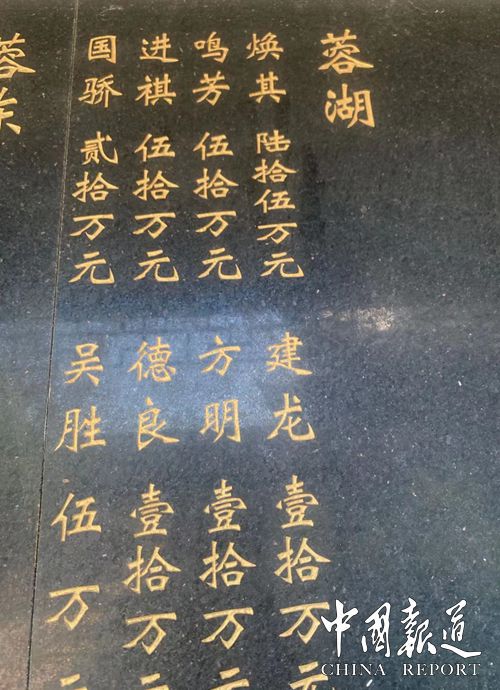 蓉湖
焕其 陆拾伍万元
鸣芳 伍拾万元
进祺 伍拾万元
国骄 贰拾万元
建龙 壹拾万元
方明 壹拾万元
德良 壹拾万元
吴胜 伍万元
蓉东
中國報道
CHINA REPORT